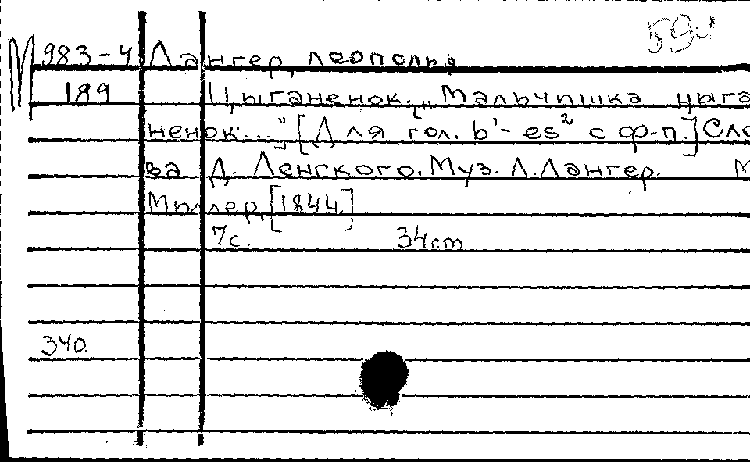 59
М 983-4 Лангер, Леопольд
189 Цыганенок. „Мальчишка цыга
ненок..." [Для гол. b'-es² с ф-п.] Сло
ва Д. Ленского. Муз. Л. Лангер. М
Миллер, [1844.]
7с. 34cm
340.